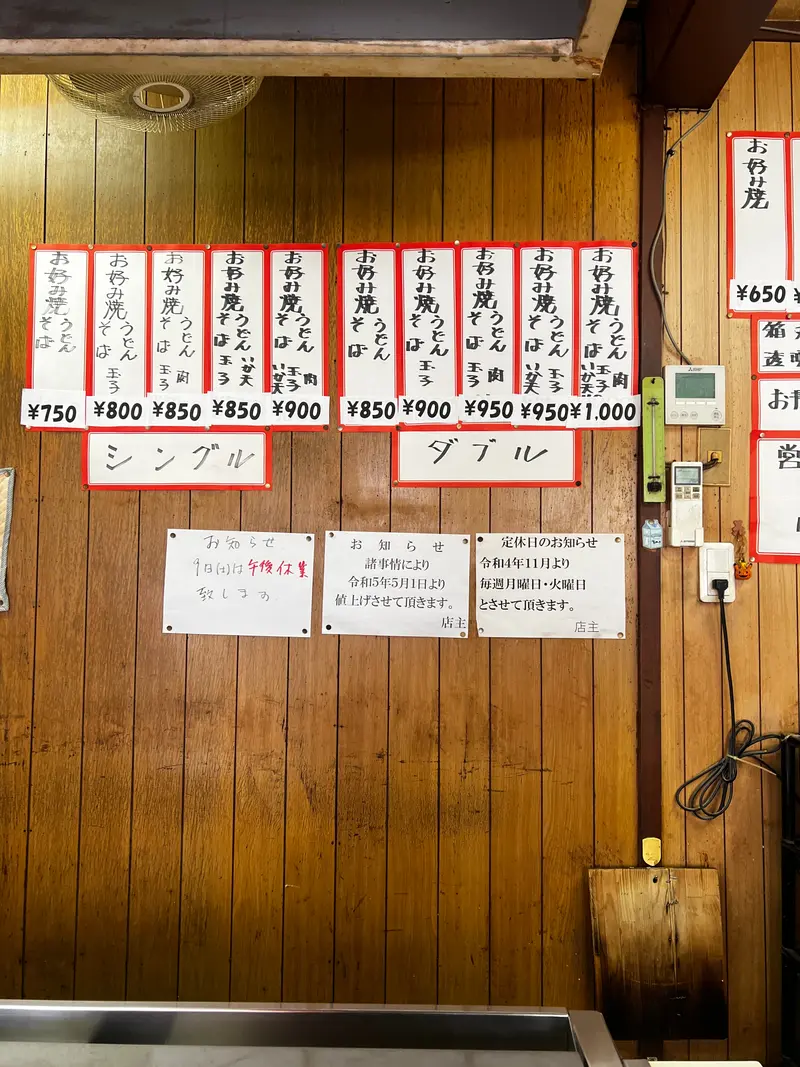 お好み焼
うどん
そば
¥750
お好み焼
うどん
そば 玉子
¥800
お好み焼
うどん 肉
そば 玉子
¥850
お好み焼
うどん いか天
そば 玉子
¥850
お好み焼
うどん 肉
玉子
そば いか天
¥900
シングル
お好み焼
うどん
そば
¥850
お好み焼
うどん
そば 玉子
¥900
お好み焼
うどん 肉
そば 玉子
¥950
お好み焼
うどん いか天
そば 玉子
¥950
お好み焼
うどん 肉
玉子
そば いか天
¥1.000
ダブル
お好み焼
¥650
お知らせ
9日(土)は午後休業
致します
お知らせ
諸事情により
令和5年5月1日より
値上げさせて頂きます。
店主
定休日のお知らせ
令和4年11月より
毎週月曜日・火曜日
とさせて頂きます。
店主